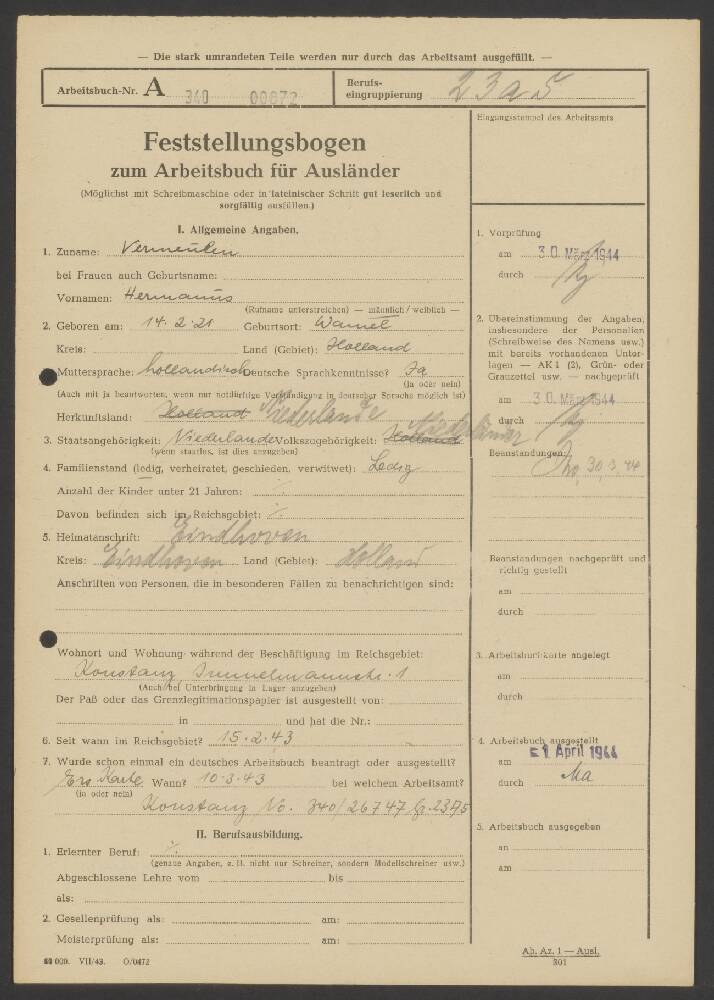 — Die stark umrandeten Teile werden nur durch das Arbeitsamt ausgefüllt. —
Arbeitsbuch-Nr. A 340 00872
Berufs-
eingruppierung 23a5
Eingangsstempel des Arbeitsamts
Feststellungsbogen
zum Arbeitsbuch für Ausländer
(Möglichst mit Schreibmaschine oder in lateinischer Schrift gut leserlich und
sorgfältig ausfüllen.)
I. Allgemeine Angaben.
1. Zuname: Vermeulen
bei Frauen auch Geburtsname:
Vornamen: Hermanus
(Rufname unterstreichen) — männlich / weiblich —
2. Geboren am: 14.2.21 Geburtsort: Wamel
Kreis: Land (Gebiet): Holland
Muttersprache: holländisch Deutsche Sprachkenntnisse? Ja
(ja oder nein)
(Auch mit ja beantworten, wenn nur notdürftige Verständigung in deutscher Sprache möglich ist)
Herkunftsland: Holland Niederlande
3. Staatsangehörigkeit: Niederlande Volkszugehörigkeit: Holland Niederländer
(wenn staatlos, ist dies anzugeben)
4. Familienstand (ledig, verheiratet, geschieden, verwitwet): Ledig
Anzahl der Kinder unter 21 Jahren: ·/.
Davon befinden sich im Reichsgebiet: ·/.
5. Heimatanschrift: Eindhoven
Kreis: Eindhoven Land (Gebiet): Holland
Anschriften von Personen, die in besonderen Fällen zu benachrichtigen sind:
Wohnort und Wohnung während der Beschäftigung im Reichsgebiet:
Konstanz, Immelmannstr. 1
(Auch bei Unterbringung in Lager anzugeben)
Der Paß oder das Grenzlegitimationspapier ist ausgestellt von:
in und hat die Nr.:
6. Seit wann im Reichsgebiet? 15.2.43
7. Wurde schon einmal ein deutsches Arbeitsbuch beantragt oder ausgestellt?
Ers Karte Wann? 10.3.43 bei welchem Arbeitsamt?
(ja oder nein)
Konstanz No. 340/26747
II. Berufsausbildung.
1. Erlernter Beruf: ·/.
(genaue Angaben, z. B. nicht nur Schreiner, sondern Modellschreiner usw.)
Abgeschlossene Lehre vom bis
als:
2. Gesellenprüfung als: am:
Meisterprüfung als: am:
60 000. VII/43. O/0472
1. Vorprüfung
am 30. März 1944
durch
2. Übereinstimmung der Angaben,
insbesondere der Personalien
(Schreibweise des Namens usw.)
mit bereits vorhandenen Unter-
lagen — AK 1 (2), Grün- oder
Grauzettel usw. — nachgeprüft
am 30. März 1944
durch
Beanstandungen:
30.3.44
Beanstandungen nachgeprüft und
richtig gestellt
am
durch
3. Arbeitsbuchkarte angelegt
am
durch
4. Arbeitsbuch ausgestellt
am 1. April 1944
durch Ma
5. Arbeitsbuch ausgegeben
an
am
Ab. Az. 1 — Ausl.
301